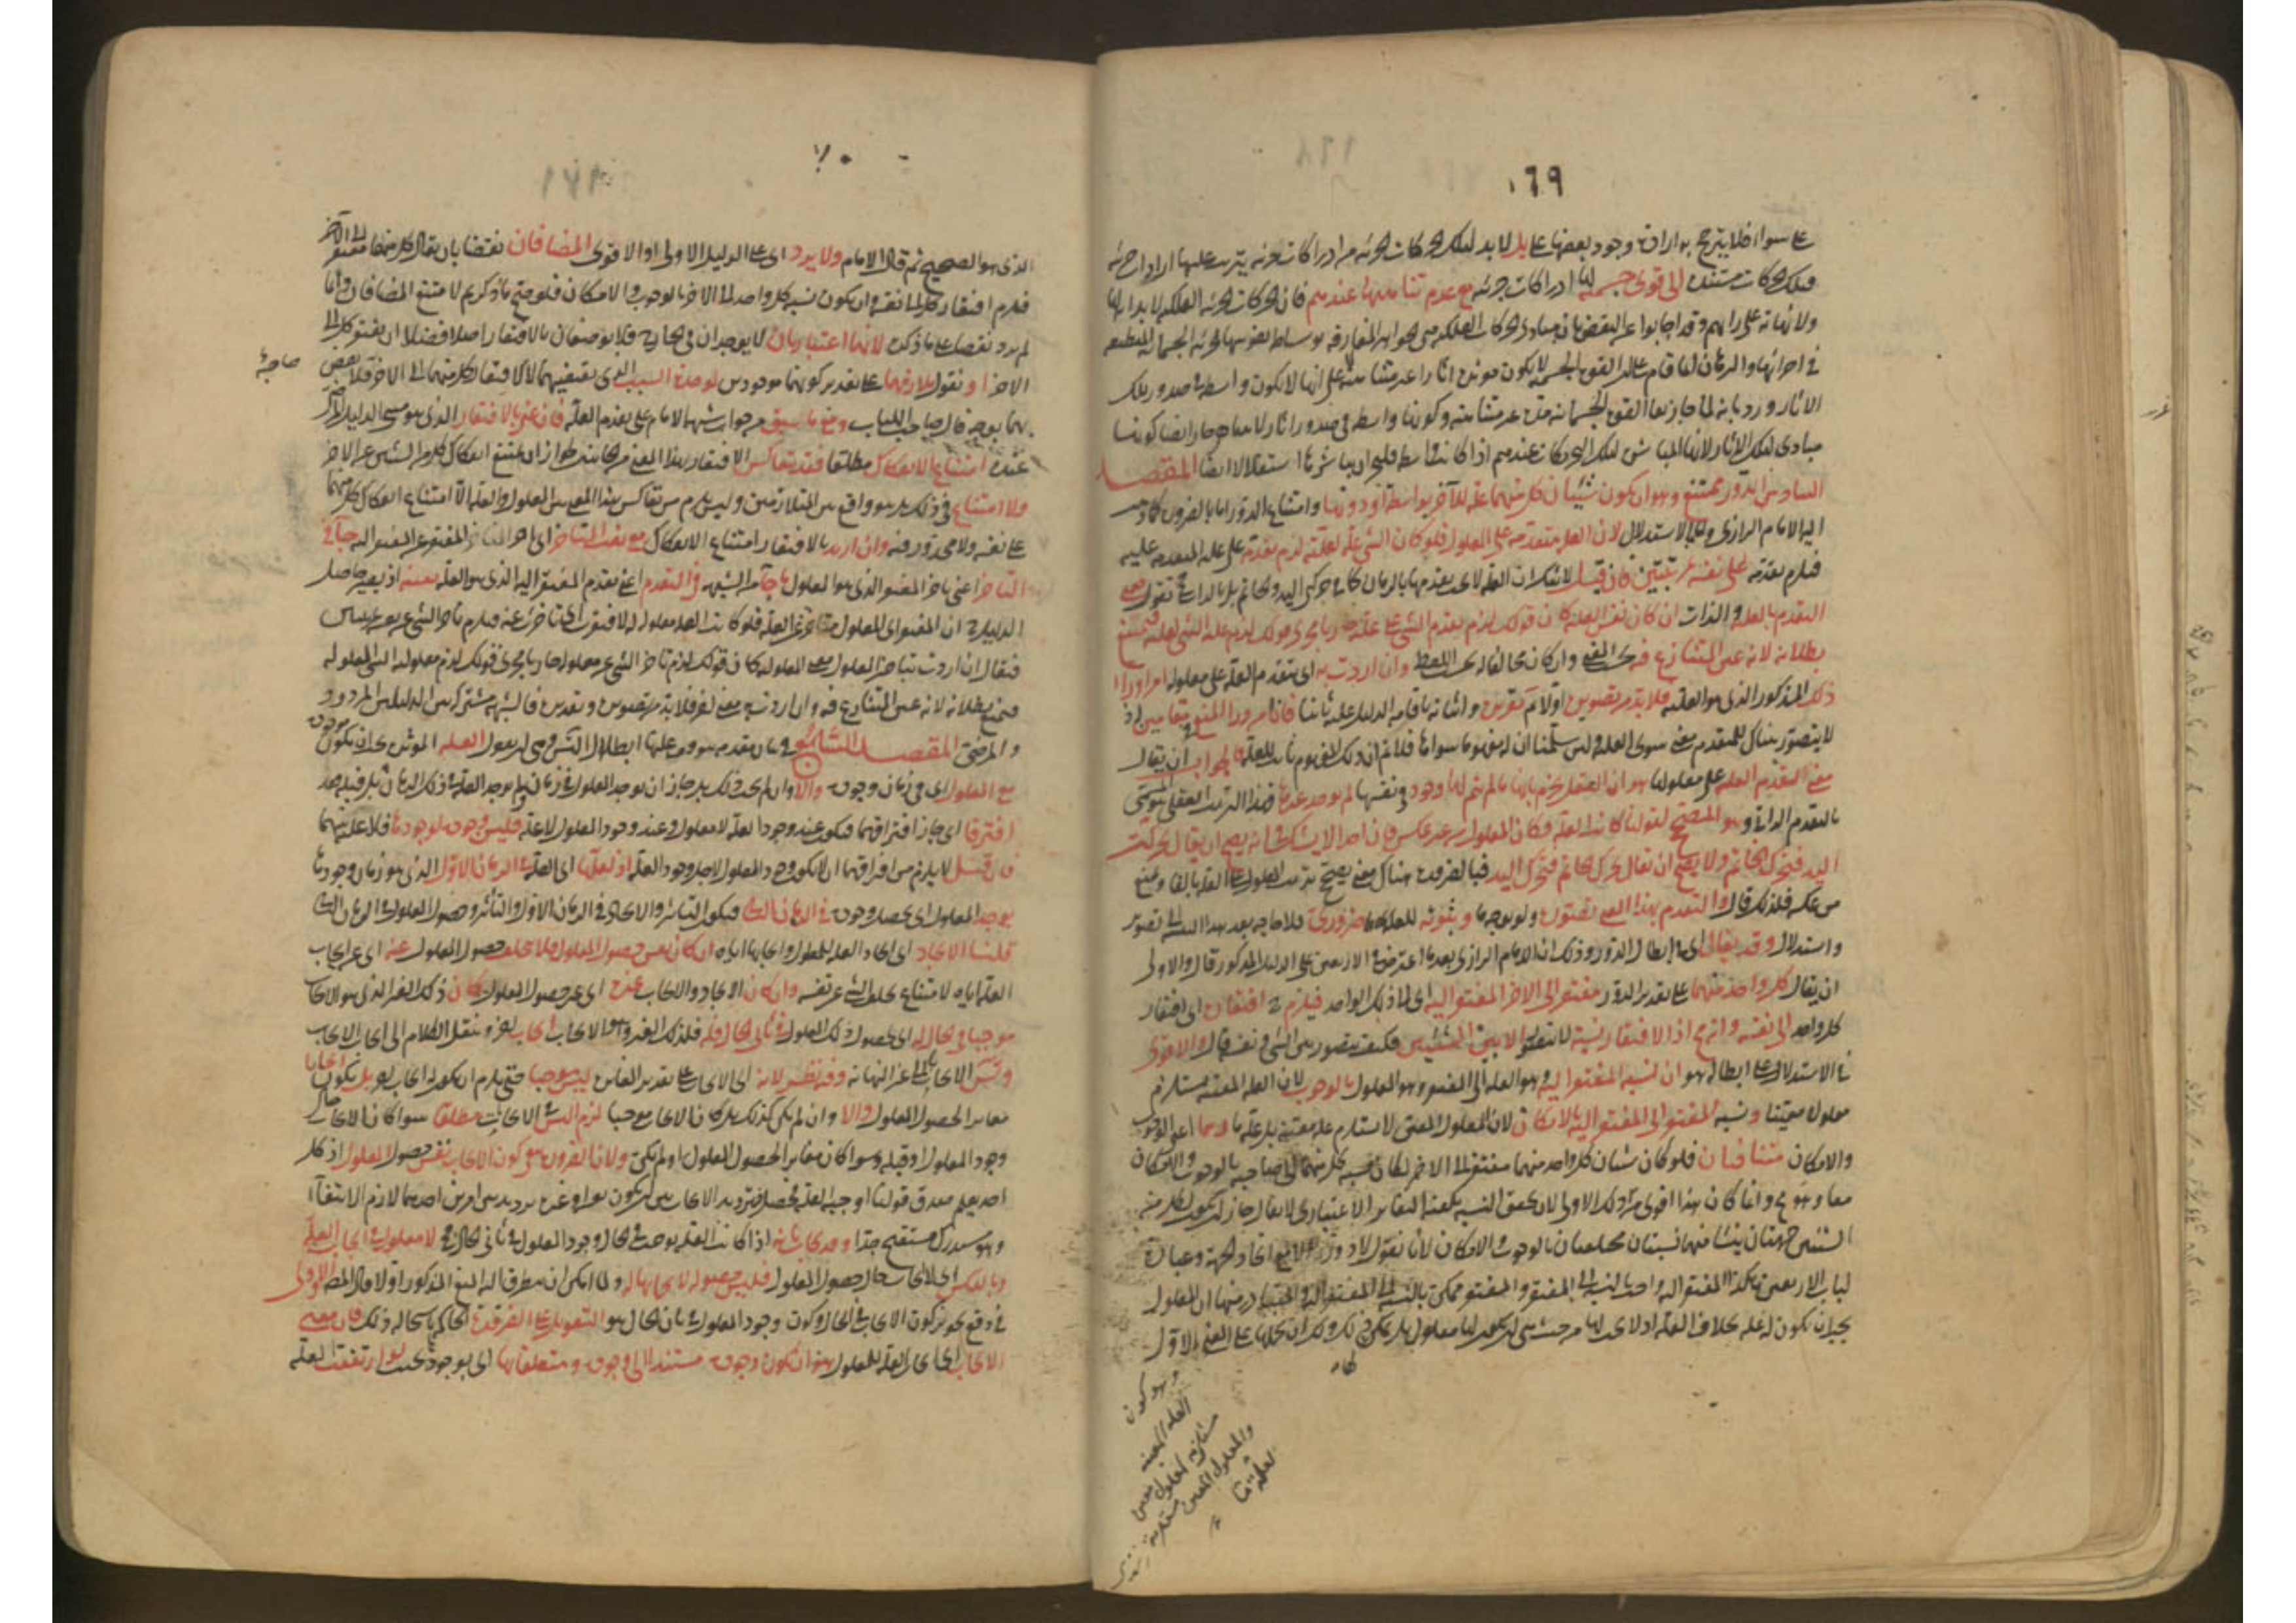 ١٦٩
على سواء فلا يترجح به ارادة وجود بعضها على بل لا بد لتلك الحركات الجزئية من ادراكات جزئية يترتب عليها ارادات جزئية
فتلك الحركات مستندة الى قوى جسمية لها ادراكات جزئية مع عدم تناهيها عندهم فان الحركات الجزئية الفلكية لا بداية لها
ولا نهاية على رأيهم وقد اجابوا عن النقض بان مبادى الحركات الفلكية هى الجواهر المفارقة بوساطة نفوسها الجزئية الجسمانية المنطبعة
فى اجرامها والبرهان انما قام على ان القوة الجسمية لا تكون مؤثرة اثارا غير متناهية لا على انها لا تكون واسطة فى صدور تلك
الاثار ورد بانه لما جاز بقاء القوة الجسمانية مدة غير متناهية وكونها واسطة فى صدور اثار لا تتناهى جاز ايضا كونها
مبادى لتلك الاثار لانها المباشرة لتلك الحركات عندهم اذا كانت واسطة فليجز ان يباشرها استقلالا ايضا المقصد
السادس الدور ممتنع وهو ان يكون شيئان كل منهما علة للآخر بواسطة او دونها وامتناع الدور اما بالضرورة كما ذهب
اليه الامام الرازى واما بالاستدلال لان العلة متقدمة على المعلول فلو كان الشىء علة لعلته لزم تقدمه على علته المتقدمة عليه
فيلزم تقدمه على نفسه بمرتبتين فان قيل لا شك ان العلة لا يجب تقدمها بالزمان كما فى حركتى اليد والخاتم بل بالذات فح نقول معنى
التقدم بالعلية والذات ان كان نفس العلية كان قولك لزم تقدم الشىء على علته جاريا مجرى قولك لزم علية الشىء لعلته فيمتنع
بطلانه لانه عين المتنازع فيه بحسب المعنى وان كان مخالفا له بحسب اللفظ وان اردت به اى بتقدم العلة على معلولها امرا وراء
ذلك المذكور الذى هو العلية فلا بد من تصويره اولا ثم تقريره واثباته باقامة الدليل عليه ثانيا فانا من وراء المنع فى المقامين اذ
لا يتصور هناك للتقدم معنى سوى العلية ولئن سلمنا ان له مفهوما سواها فلا نم ان ذلك المفهوم ثابت للعلة والجواب ان يقال
معنى التقدم العلة على معلولها هو ان العقل يجزم بانها ما لم يتم لها وجود فى نفسها لم يوجد غيرها فهذا الترتيب العقلى هو المسمى
بالتقدم الذاتى وهو المصحح لقولنا كانت العلة فكان المعلول من غير عكس فان احدا لا يشك فى انه يصح ان يقال تحركت
اليد فتحرك الخاتم ولا يصح ان يقال تحرك الخاتم فتحرك اليد فبالضرورة هناك معنى يصحح ترتيب المعلول على العلة بالفاء ويمنع
من عكسه فلذلك قال والتقدم بهذا المعنى تصوره ولو بوجه ما وثبوته للعلة ضرورى فلا حاجة بعد هذا التنبيه الى تصوير
واستدلال وقد يقال اى فى ابطال الدور وذلك ان الامام الرازى بعد ما اعترض فى الاربعين على الدليل المذكور قال والاولى
ان يقال كل واحد منهما على تقدير الدور مفتقر الى الآخر المفتقر اليه اى الى ذلك الواحد فيلزم ح افتقاره اى افتقار
كل واحد الى نفسه وانه مح اذ الافتقار نسبة لا تتصور الا بين الشيئين فكيف يتصور بين الشىء ونفسه قال والاقوى
فى الاستدلال على ابطاله هو ان نسبة المفتقر اليه وهو العلة الى المفتقر وهو المعلول بالوجوب لان العلة المعينة تستلزم
معلولا معينا ونسبة المفتقر الى المفتقر اليه بالامكان لان المعلول المعين لا يستلزم علة معينة بل علة ما وهما اعنى الوجوب
والامكان متنافيان فلو كان شيئان كل واحد منهما مفتقر الى الآخر لكان نسبة كل منهما الى صاحبه بالوجوب والامكان
معا وهو مح وانما كان هذا اقوى من ذلك الاولى لان تحقق النسبة يكفيه التغاير الاعتبارى لا يقال جاز ان يكون لكل من
الشيئين جهتان ينشأ منهما نسبتان مختلفتان بالوجوب والامكان لانا نقول لا دور الا مع اتحاد الجهة وعبارة
لباب الاربعين هكذا المفتقر اليه واجب بالنسبة الى المفتقر والمفتقر ممكن بالنسبة الى المفتقر اليه والمتبادر منها ان المعلول
يجب ان يكون له علة بخلاف العلة اذ لا يجب لها من حيث هى ان يكون لها معلول بل يمكن ذلك ولك ان تحملها على المعنى الاول
وهو كون
العلة المعينة
مستلزمة لمعلول معين
والمعلول المعين مستلزما
لعلة ما
١٧٠
الذى هو الصحيح ثم قال الامام ولا يرد اى على الدليل الاولى او الاقوى المضافان نقضا بان يقال كل منهما مفتقر الى الآخر
فيلزم افتقار كل الى نفسه وان يكون نسبة كل واحد الى الآخر بالوجوب والامكان فلو صح ما ذكرتم لامتنع المضافان وانما
لم يرد نقضا على ما ذكره لانهما اعتباريان لا يوجدان فى الخارج فلا يوصفان بالافتقار اصلا فضلا ان يفتقر كل الى
الآخر او نقول تلازمهما على تقدير كونهما موجودين لوحدة السبب الذى يقتضيهما لا لافتقار كل منهما الى الآخر فلا نقض
بهما بوجه قال صاحب اللباب ومنع ما سبق من جواب شبهة الامام على تقدم العلة فان عنى بالافتقار الذى هو مبنى الدليل المختار
عنده امتناع الانفكاك مطلقا فقد يتعاكس الافتقار بهذا المعنى من الجانبين لجواز ان يمتنع انفكاك كل من الشيئين عن الآخر
ولا امتناع فى ذلك بل هو واقع بين المتلازمين وليس يلزم من تعاكس هذا المعنى بين المعلول والعلة الا امتناع انفكاك كل منهما
عن نفسه ولا محذور فيه وان اريد بالافتقار امتناع الانفكاك مع نعت المتأخر اى تأخر المفتقر عن المفتقر اليه جاء فى
التأخر اعنى تأخر المفتقر الذى هو المعلول ما جاء من الشبهة فى التقدم اعنى تقدم المفتقر اليه الذى هو العلة بعينه اذ يصير حاصل
الدليل ح ان المفتقر اى المعلول متأخر عن العلة فلو كانت العلة معلولة له لافتقرت اى تأخرت عنه فيلزم تأخر الشىء عن نفسه بمرتبتين
فيقال ان اردت بتأخر المعلول معنى المعلولية كان قولك لزم تأخر الشىء عن معلوله جاريا مجرى قولك لزم معلولية الشىء لمعلوله
فيمنع بطلانه لانه عين المتنازع فيه وان اردت به معنى اخر فلا بد من تصويره وتقريره فالشبهة مشتركة بين الدليلين المردود
والمرضى المقصد السابع فى بيان مقدمة يتوقف عليها ابطال التسلسل وهى ان نقول العلة المؤثرة يجب ان تكون موجودة
مع المعلول اى فى زمان وجوده والا وان لم يجب ذلك بل جاز ان يوجد المعلول فى زمان ولم يوجد العلة فى ذلك الزمان بل قبله فقد
افترقا اى جاز افتراقهما فيكون عند وجود العلة لا معلول وعند وجود المعلول لا علة فليس وجوده لوجودها فلا علية بينهما
فان قيل لا يلزم من افتراقهما ان لا يكون وجود المعلول لاجل وجود العلة اذ لعلها اى العلة فى الزمان الاول الذى هو زمان وجودها
يوجد المعلول اى يحصل وجوده فى الزمان الثانى فيكون التأثير والايجاد فى الزمان الاول والتأثر وحصول المعلول فى الزمان الثانى
قلنا الايجاد اى ايجاد العلة للمعلول وايجابها اياه ان كان نفس حصول المعلول فلا يتخلف حصول المعلول عنه اى عن ايجاب
العلة اياه لامتناع تخلف الشىء عن نفسه وان كان الايجاد والايجاب غيره اى غير حصول المعلول كان ذلك الغير الذى هو الايجاب
موجبا فى حال له اى لحصول ذلك المعلول فى ثانى الحال فله فلذلك الغير وهو الايجاب ايجاب اخر وننقل الكلام الى ايجاب الايجاب
وتسلسل الايجابات الى غير النهاية وفيه نظر لانه اى الايجاب على تقدير المغايرة ليس موجبا حتى يلزم ان يكون له ايجاب اخر بل يكون ايجابا
مغايرا لحصول المعلول والا وان لم يكن كذلك بل كان الايجاب موجبا لزم التسلسل فى الايجابات مطلقا سواء كان الايجاب حال
وجود المعلول او قبله وسواء كان مغايرا لحصول المعلول او لم يكن ولان الضرورة مع كون الايجاب نفس حصول المعلول اذ كل
احد يعلم صدق قولنا اوجبته العلة فحصل فترديد الايجاب بين ان يكون هو او غيره ترديد بين امرين احدهما لازم الانتفاء
وهو مستدرك مستقبح جدا وقد يجاب بانه اذا كانت العلة توجب فى الحال وجود المعلول فى ثانى الحال ففى لا معلول فى ايجاب العلة
وبالعكس اى لا ايجاب حال حصول المعلول فليس حصوله لايجابها له ولما امكن ان يتطرق اليه المنع المذكور اولا قال المص والاولى
فى دفع تجويز كون الايجاب فى الحال وكون وجود المعلول فى ثانى الحال هو التعويل على الضرورة الحاكمة باستحالة ذلك فان معنى
الايجاب اى ايجاب العلة للمعلول هو ان يكون وجوده مستندا الى وجودها ومتعلقا بها اى بوجودها بحيث لو ارتفعت العلة